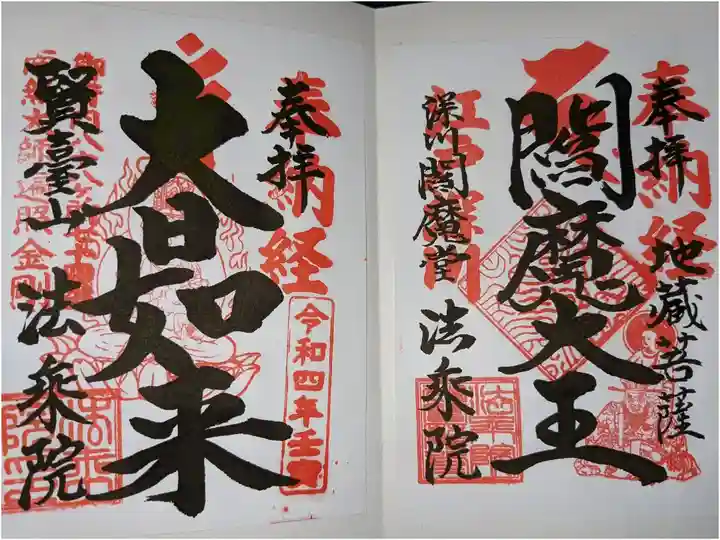 奉拝
奉納経
地蔵菩薩
閻魔大王
深川閻魔堂
法乗院
奉拝
奉納経
令和四年壬寅
大日如来
賢臺山
法乗院